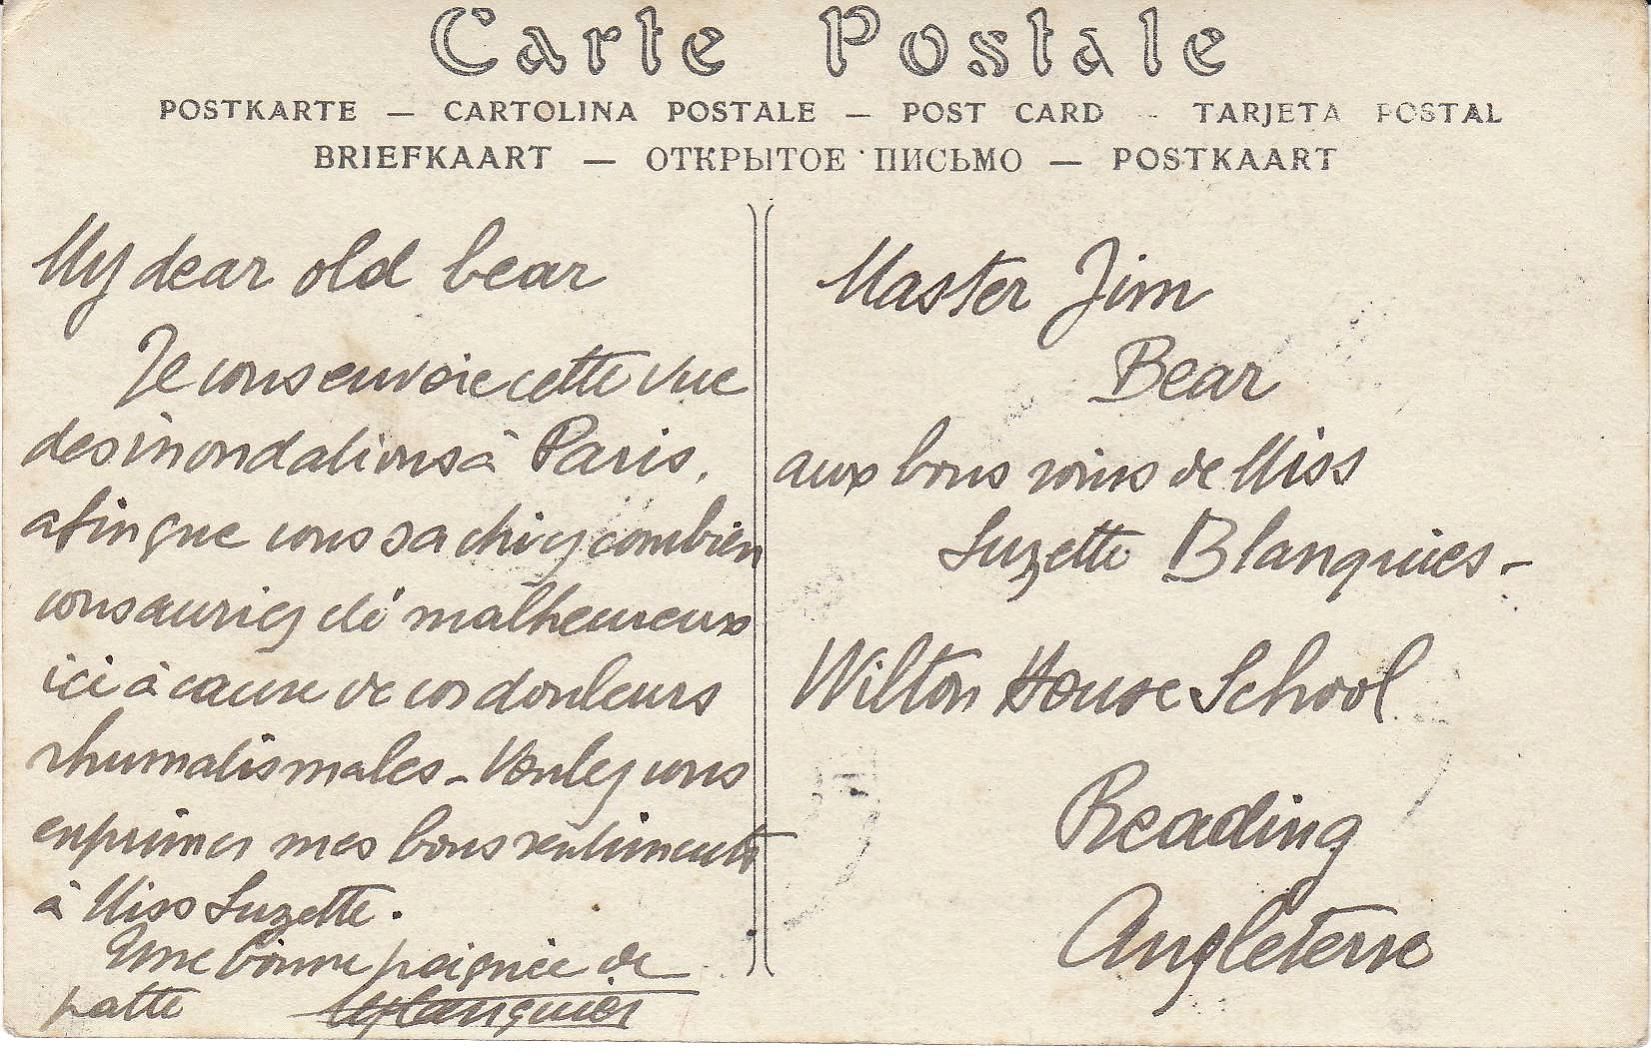 Carte Postale
POSTKARTE — CARTOLINA POSTALE — POST CARD - TARJETA POSTAL
BRIEFKAART — ОТКРЫТОЕ ПИСЬМО — POSTKAART
My dear old bear
Je vous envoie cette vue
des inondations à Paris,
afin que vous sachiez combien
vous auriez été malheureux
ici à cause de vos douleurs
rhumatismales - Voulez vous
exprimer mes bons sentiments
à Miss Suzette.
Une bonne poignée de
patte
Master Jim
Bear
aux bons soins de Miss
Suzette Blanquies -
Wilton House School
Reading
Angleterre